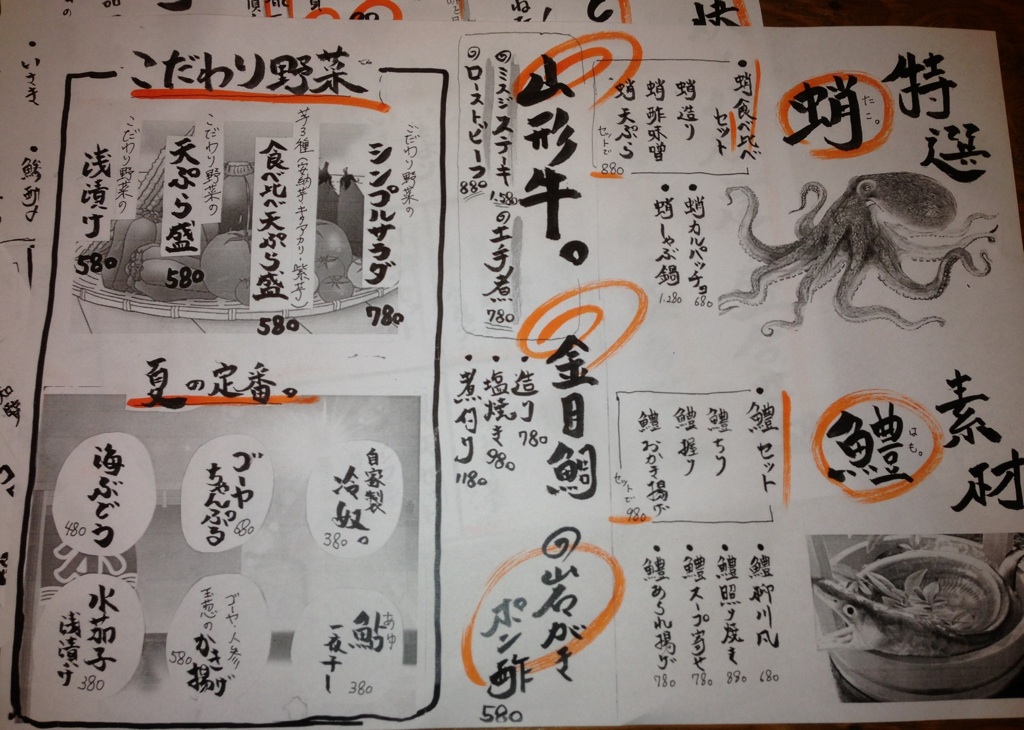 特選
素材
蛸
たこ。
・蛸食べ比べ
セット
蛸造り
蛸酢味噌
蛸天ぷら
セットで
880
・蛸カルパッチョ
680
・蛸しゃぶ鍋
1.280
鱧
はも。
・鱧セット
鱧ちり
鱧握り
鱧おかき揚げ
セットで
980
・鱧柳川風
680
・鱧照り焼き
880
・鱧スープ寄せ
780
・鱧あられ揚げ
780
山形牛。
のミスジステーキ
1.580
のローストビーフ
880
のエ手煮
780
金目鯛
・造り
780
・塩焼き
980
・煮付け
1180
の岩がき
ポン酢
580
こだわり野菜
こだわり野菜の
シンプルサラダ
780
芋3種(安納芋・キタアカリ・紫芋)
食べ比べ天ぷら盛
580
こだわり野菜の
天ぷら盛
580
こだわり野菜の
浅漬け
580
夏の定番。
自家製
冷奴。
380
ゴーヤ
ちゃんぷる
680
海ぶどう
480
あゆ
鮎
一夜干し
380
ゴーヤ・人参
玉葱のかき揚げ
580
水茄子
浅漬け
380
・いさき